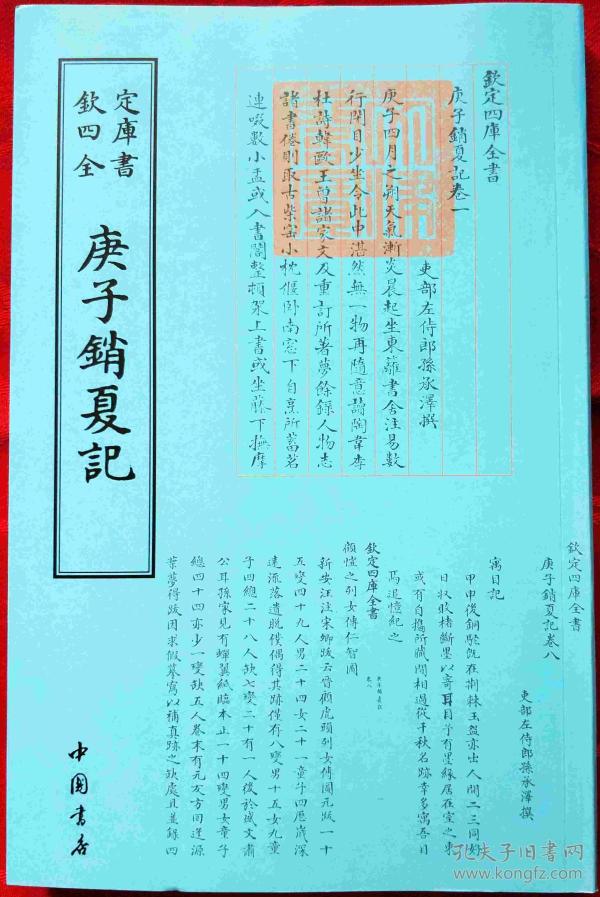 欽定四庫全書
庚子銷夏記
中國書店
欽定四庫全書
庚子銷夏記卷一
吏部左侍郎孫承澤撰
庚子四月之朔天氣漸炎晨起坐東籬書舍注易數
行閉目少坐令此中湛然無一物再隨意讀陶韋李
杜詩韓歐王曾諸家文及重訂所著夢餘錄人物志
諸書倦則取古柴窑小枕偃卧南窓下自烹所蓄茗
連啜數小盂或入書閣整頓架上書或坐藤下撫摩
欽定四庫全書
庚子銷夏記卷八
吏部左侍郎孫承澤撰
寓目記
甲申後銅駝既在荆棘玉盌亦出人間二三同好
日收敗楮斷墨以寄耳目予有墨緣居在室之東
或有自攜所藏間相過從千秋名跡幸多寓吾目
焉追憶紀之
欽定四庫全書
顧愷之列女傳仁智圖
新安汪注宋卿跋云晉顧虎頭列女傳圖元版一十
五變四十九人男二十四女二十一童子四歷歲深
遠流落遺脱僕偶得其跡僅有八變男十五女九童
子四總二十八人缺七變二十有一人後於城文肅
公耳孫家見有蟬翼紙臨本止一十四變男女童子
總四十四亦少一變缺五人卷末有元友方同逢源
葉夢得跋因求假摹寫以補真跡之缺處且並錄四
孔夫子旧书网
www.kongfz.com